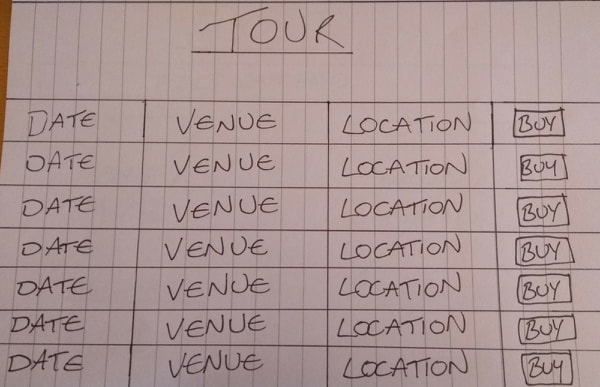 TOUR
DATE VENUE LOCATION BUY
DATE VENUE LOCATION BUY
DATE VENUE LOCATION BUY
DATE VENUE LOCATION BUY
DATE VENUE LOCATION BUY
DATE VENUE LOCATION BUY
DATE VENUE LOCATION BUY